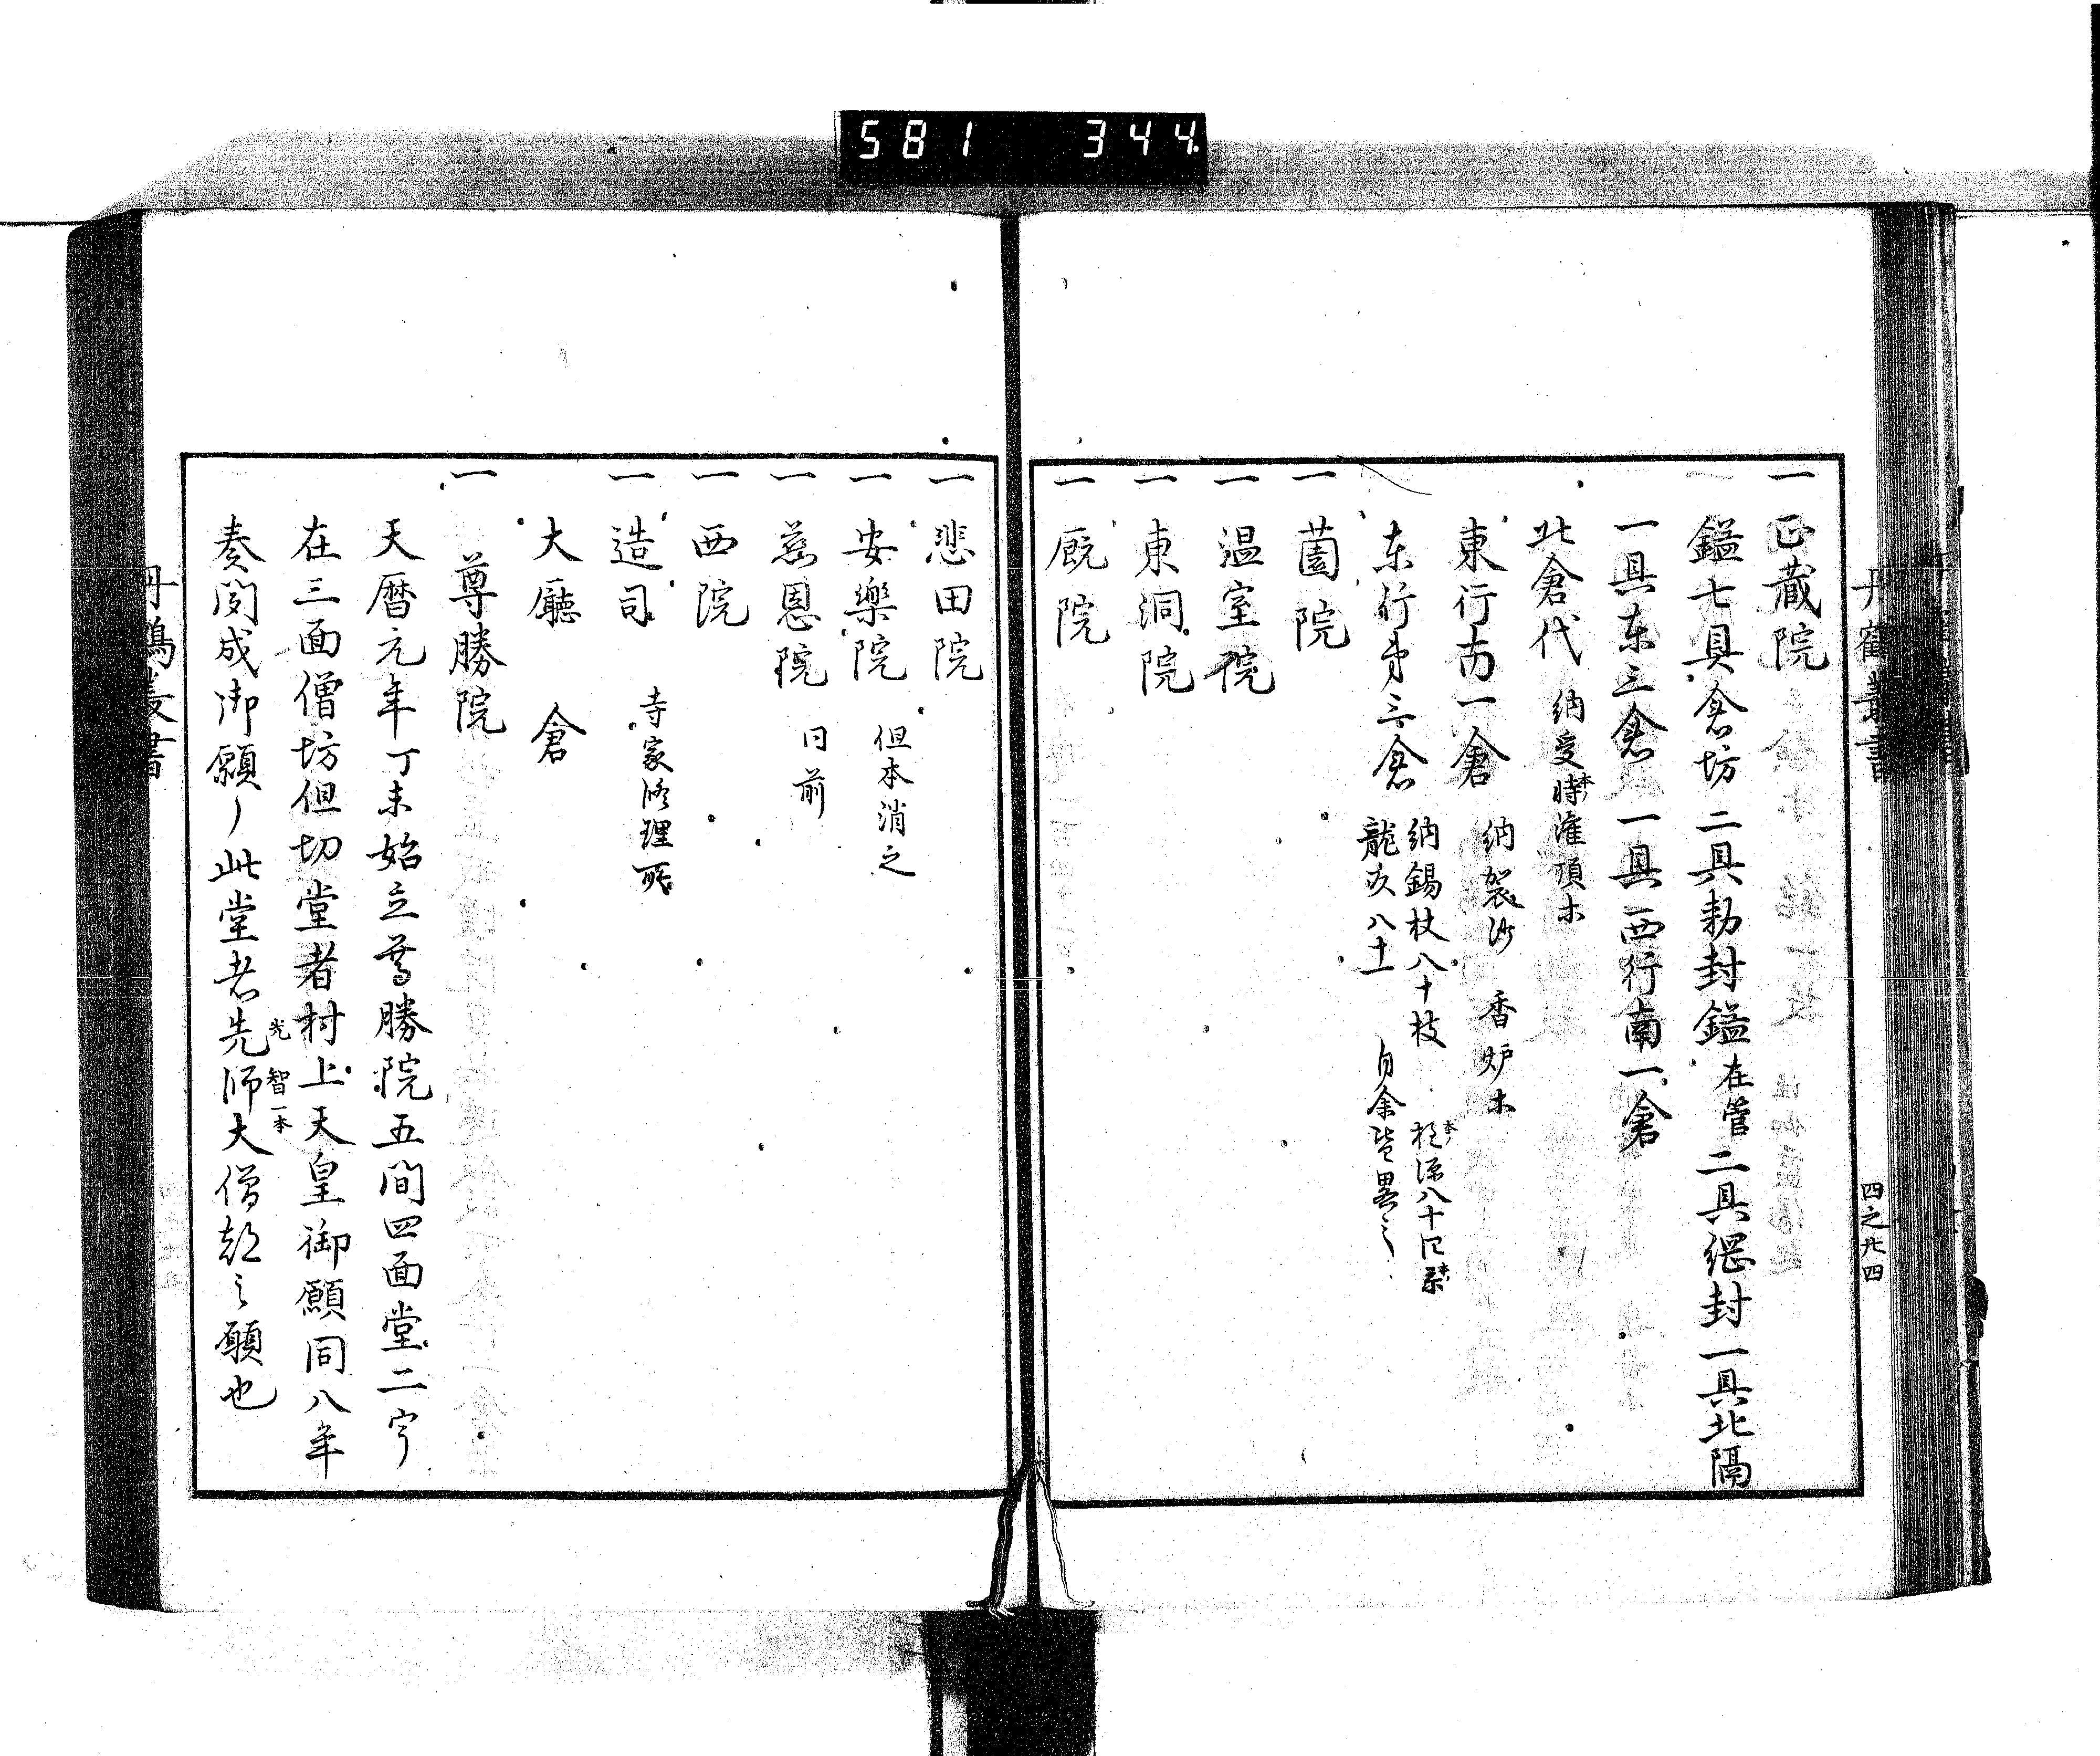 581 344
丹鶴叢書
四之廿四
一正蔵院
鎰七具倉坊二具勅封鎰在管二具綱封一具北隔
一具东三倉一具西行南一倉
北倉代 納受時灌頂木
東行南一倉 納袈沙 香炉木
东行第三倉 納錫杖八十枝
龍次八十一 自余皆畧之
一薗院
一温室院
一東洞院
一厩院
一悲田院
一安樂院 但本消之
一慈恩院 同前
一西院
一造司 寺家修理所
大廳 倉
一尊勝院
天暦元年丁未始立尊勝院五間四面堂二宇
在三面僧坊但切堂者村上天皇御願同八年
奏聞成御願ノ此堂者先師大僧都之願也
光智一本
丹鶴叢書